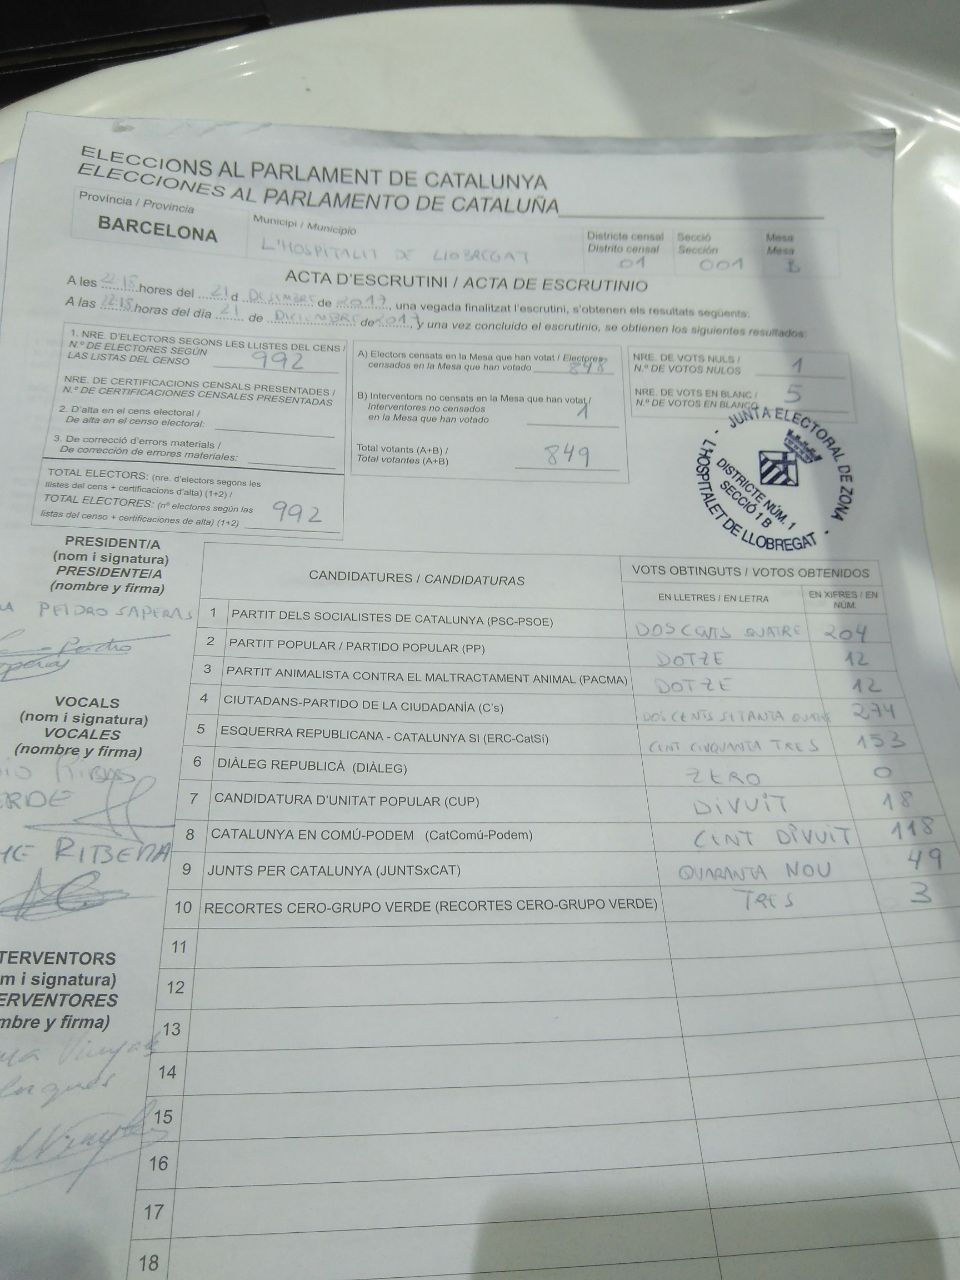 ELECCIONS AL PARLAMENT DE CATALUNYA
ELECCIONES AL PARLAMENTO DE CATALUÑA
Província / Provincia
BARCELONA
Municipi / Municipio
L'HOSPITALIT DE LLOBREGAT
Districte censal
Distrito censal
01
Secció
Sección
001
Mesa
Mesa
B
ACTA D'ESCRUTINI / ACTA DE ESCRUTINIO
A les 22:18 hores del 21 d DESEMBRE de 2017, una vegada finalitzat l'escrutini, s'obtenen els resultats següents:
A las 22:18 horas del día 21 de DICIEMBRE de 2017 y una vez concluido el escrutinio, se obtienen los siguientes resultados:
1. NRE. D'ELECTORS SEGONS LES LLISTES DEL CENS /
N.º DE ELECTORES SEGÚN
LAS LISTAS DEL CENSO 992
NRE. DE CERTIFICACIONS CENSALS PRESENTADES /
N.º DE CERTIFICACIONES CENSALES PRESENTADAS
2. D'alta en el cens electoral /
De alta en el censo electoral:
3. De correcció d'errors materials /
De corrección de errores materiales:
TOTAL ELECTORS: (nre. d'electors segons les
llistes del cens + certificacions d'alta) (1+2) /
TOTAL ELECTORES: (nº electores según las
listas del censo + certificaciones de alta) (1+2) 992
A) Electors censats en la Mesa que han votat / Electores
censados en la Mesa que han votado 848
B) Interventors no censats en la Mesa que han votat /
Interventores no censados
en la Mesa que han votado 1
Total votants (A+B) /
Total votantes (A+B) 849
NRE. DE VOTS NULS /
N.º DE VOTOS NULOS 1
NRE. DE VOTS EN BLANC /
N.º DE VOTOS EN BLANCO 5
JUNTA ELECTORAL DE ZONA
L'HOSPITALET DE LLOBREGAT
DISTRICTE NÚM. 1
SECCIÓ 1 B
PRESIDENT/A
(nom i signatura)
PRESIDENTE/A
(nombre y firma)
PEIDRO SAPERAS
VOCALS
(nom i signatura)
VOCALES
(nombre y firma)
TERVENTORS
m i signatura)
ERVENTORES
mbre y firma)
CANDIDATURES / CANDIDATURAS
VOTS OBTINGUTS / VOTOS OBTENIDOS
EN LLETRES / EN LETRA
EN XIFRES / EN NÚM.
1 PARTIT DELS SOCIALISTES DE CATALUNYA (PSC-PSOE) DOSCENTS QUATRE 204
2 PARTIT POPULAR / PARTIDO POPULAR (PP) DOTZE 12
3 PARTIT ANIMALISTA CONTRA EL MALTRACTAMENT ANIMAL (PACMA) DOTZE 12
4 CIUTADANS-PARTIDO DE LA CIUDADANÍA (C's) DOSCENTS SETANTA QUATRE 274
5 ESQUERRA REPUBLICANA - CATALUNYA SI (ERC-CatSí) CENT CINQUANTA TRES 153
6 DIÀLEG REPUBLICÀ (DIÀLEG) ZERO 0
7 CANDIDATURA D'UNITAT POPULAR (CUP) DIVUIT 18
8 CATALUNYA EN COMÚ-PODEM (CatComú-Podem) CENT DIVUIT 118
9 JUNTS PER CATALUNYA (JUNTSxCAT) QUARANTA NOU 49
10 RECORTES CERO-GRUPO VERDE (RECORTES CERO-GRUPO VERDE) TRES 3
11
12
13
14
15
16
17
18